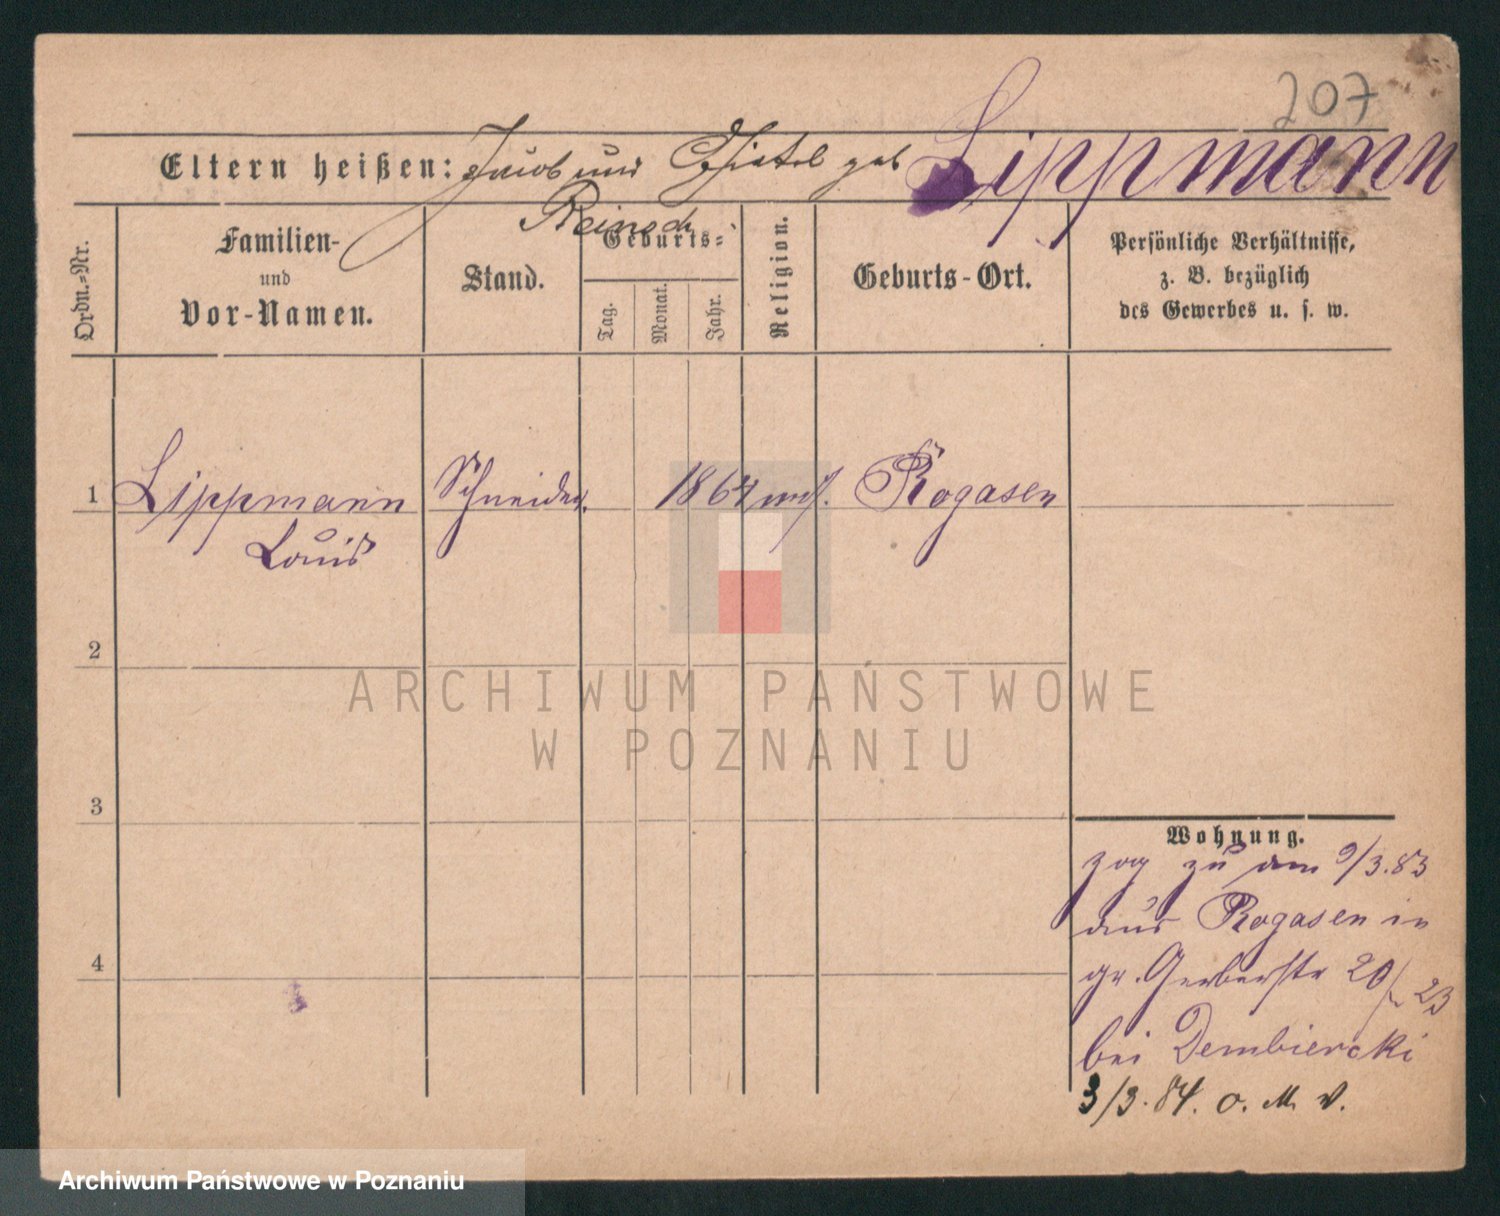 207
Lippmann
Eltern heißen: Jacob und geb
Familien-
und
Vor-Namen.
Stand.
Geburts-
Tag.
Monat.
Jahr.
Religion.
Geburts-Ort.
Persönliche Verhältnisse,
z. B. bezüglich
des Gewerbes u. s. w.
Ordn.-Nr.
1 Lippmann Schneider. 1864 mos. Rogasen
Louis
2
3
4
Wohnung.
zog zu am 9/3.83
aus Rogasen in
gr. Gerberstr 20/23
bei Dembiercki
3/3.84. o. M. V.
ARCHIWUM PAŃSTWOWE
W POZNANIU
Archiwum Państwowe w Poznaniu